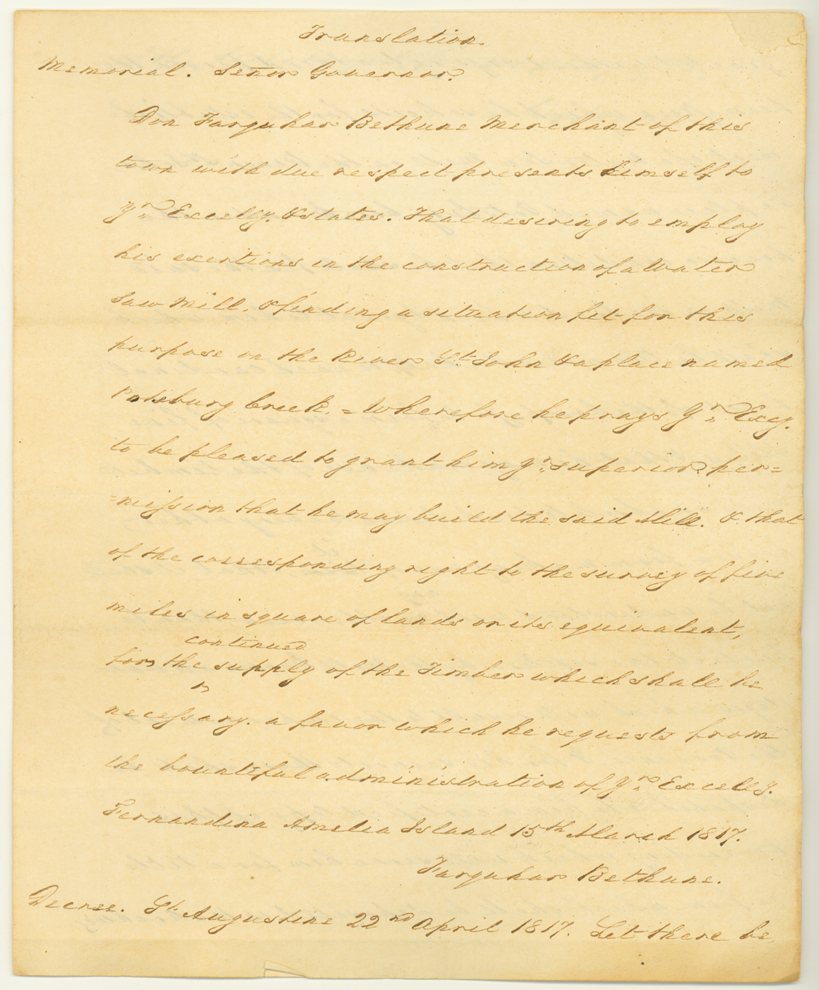 Translation.
Memorial. Señor Governor.
Don Farquhar Bethune Merchant of this
town with due respect presents himself to
Yr. Excelly. & states. That desiring to employ
his exertions in the construction of a Water
Saw Mill, & finding a situation fit for this
purpose on the River St. John & a place named
Creek. = Wherefore he prays Yr. Excy.
to be pleased to grant him yr. superior per=
=mission that he may build the said Mill. & that
of the corresponding right to the survey of five
miles in square of lands or its equivalent,
continued
for the supply of the Timber which shall be
necessary. a favor which he requests from
the bountiful administration of Yr. Excelly.
Fernandina Amelia Island 15th March 1817.
Farquhar Bethune.
Decree. St. Augustine 22nd April 1817. Let there be